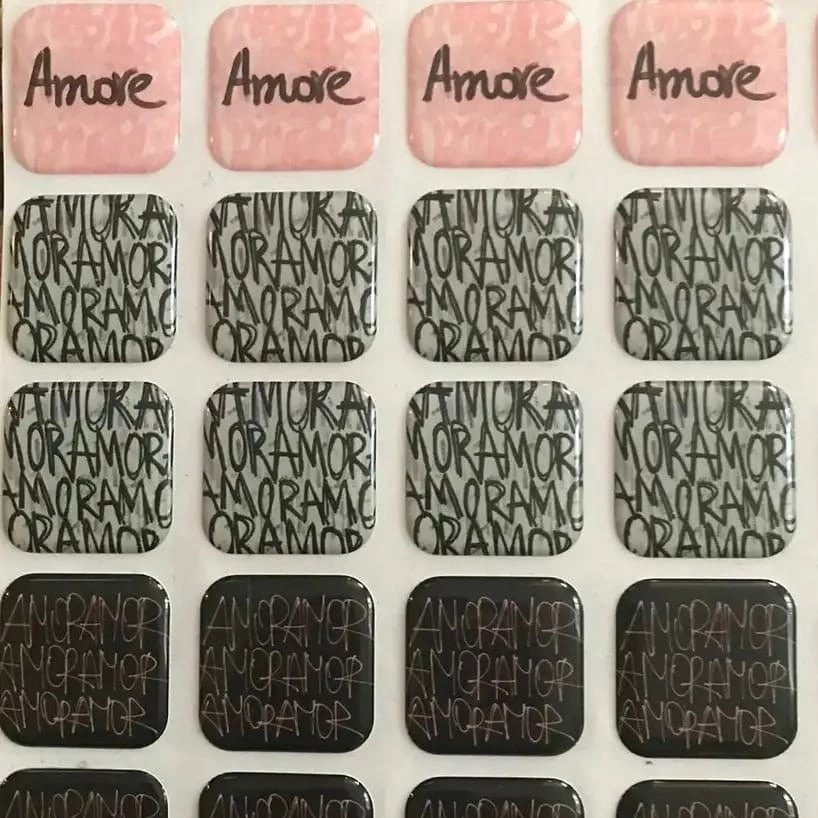 Amore Amore Amore Amore
AMORA AMORA AMORA AMORA
MORAMOR MORAMOR MORAMOR MORAMOR
AMORAMO AMORAMO AMORAMO AMORAMO
ORAMOR ORAMOR ORAMOR ORAMOR
AMORA AMORA AMORA AMORA
MORAMOR MORAMOR MORAMOR MORAMOR
AMORAMO AMORAMO AMORAMO AMORAMO
ORAMOR ORAMOR ORAMOR ORAMOR
AMORAMOR AMORAMOR AMORAMOR AMORAMOR
AMORAMOR AMORAMOR AMORAMOR AMORAMOR
AMORAMOR AMORAMOR AMORAMOR AMORAMOR
AMORAMOR AMORAMOR AMORAMOR AMORAMOR